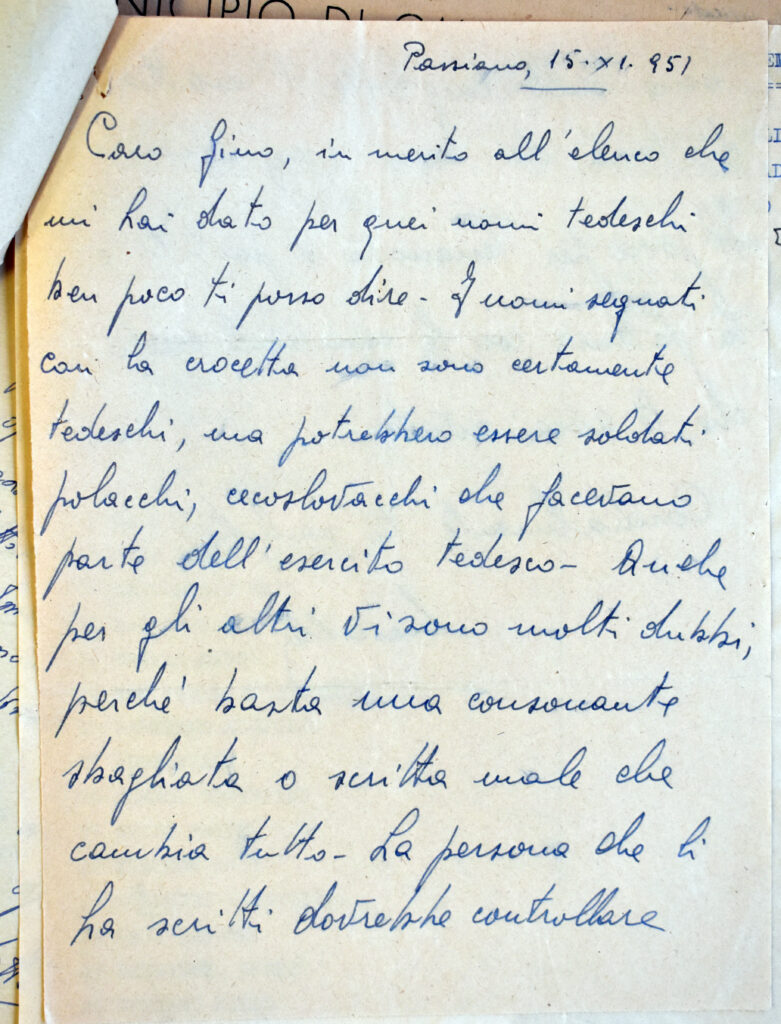 NICIPIO DI
Passiano, 15.XI.951
Caro Gino, in merito all'elenco che
mi hai dato per quei nomi tedeschi
ben poco ti posso dire - I nomi segnati
con la crocetta non sono certamente
tedeschi, ma potrebbero essere soldati
polacchi, cecoslovacchi che facevano
parte dell'esercito tedesco - Anche
per gli altri vi sono molti dubbi,
perché basta una consonante
sbagliata o scritta male che
cambia tutto - La persona che li
ha scritti dovrebbe controllare